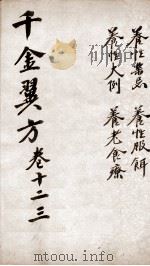 養性禁忌　養性服餌
養性大例　養老食療
千金翼方卷十二三
mtoou.info mtoou.com